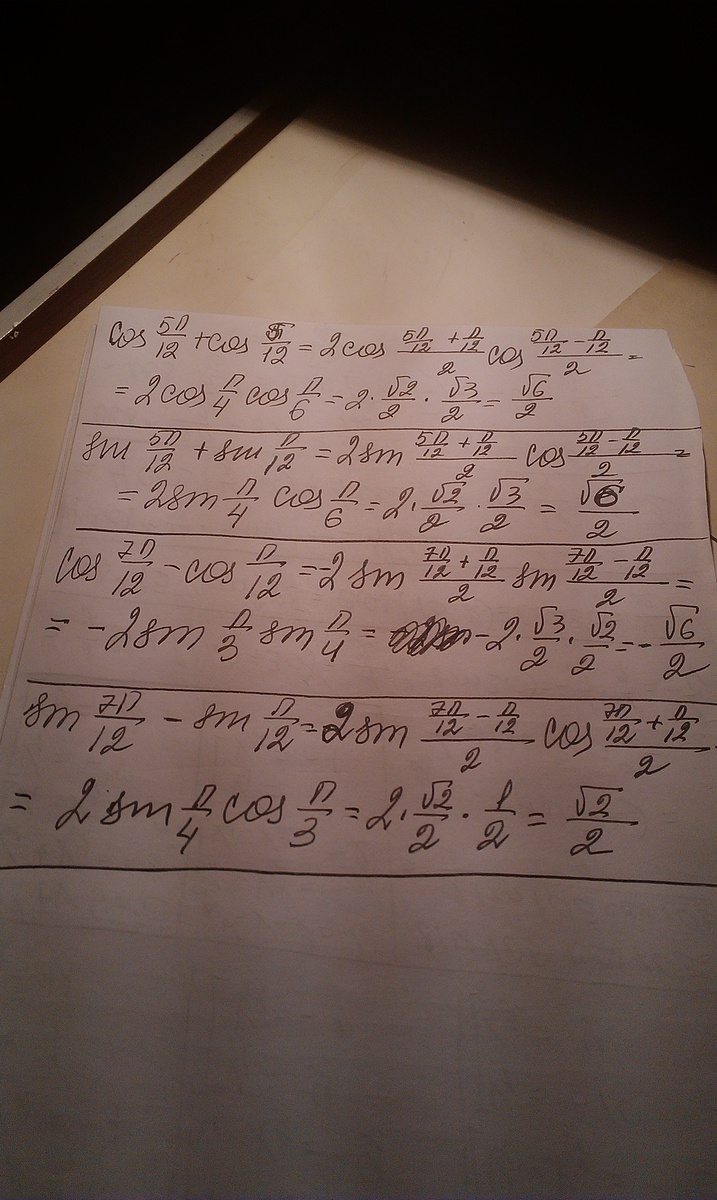 cos 5π/12 + cos π/12 = 2cos (5π/12 + π/12)/2 cos (5π/12 - π/12)/2 =
= 2cos π/4 cos π/6 = 2 · √2/2 · √3/2 = √6/2
sin 5π/12 + sin π/12 = 2sin (5π/12 + π/12)/2 cos (5π/12 - π/12)/2 =
= 2sin π/4 cos π/6 = 2 · √2/2 · √3/2 = √6/2
cos 7π/12 - cos π/12 = -2sin (7π/12 + π/12)/2 sin (7π/12 - π/12)/2 =
= -2sin π/3 sin π/4 = -2 · √3/2 · √2/2 = -√6/2
sin 7π/12 - sin π/12 = 2sin (7π/12 - π/12)/2 cos (7π/12 + π/12)/2
= 2 sin π/4 cos π/3 = 2 · √2/2 · 1/2 = √2/2